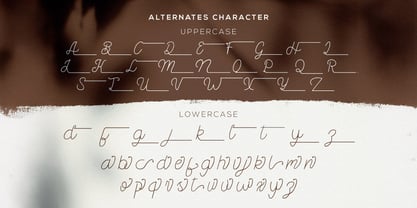 ALTERNATES CHARACTER
UPPERCASE
A B C D E F G H I
J K L M N O P Q R
S T U V W X Y Z
LOWERCASE
d f g j k l t y z
abcdefghijklmn
opqrstuvwxyz